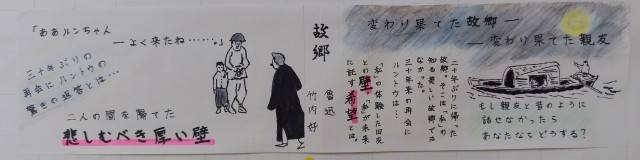 変わり果てた故郷―
―変わり果てた親友
二十年ぶりに帰った
故郷。そこは「私」の
知る美しい故郷では
なかった。
三十年来の再会に
ルントウは…
「私」の体験した旧友
との壁、「私」が未来
に託す希望とは。
もし親友と昔のように
話せなかったら
あなたならどうする？
故郷
魯迅
竹内好
「ああルンちゃん
―よく来たね……。」
三十年ぶりの
再会にルントウの
驚きの返答とは…
二人の間を隔てた
悲しむべき厚い壁